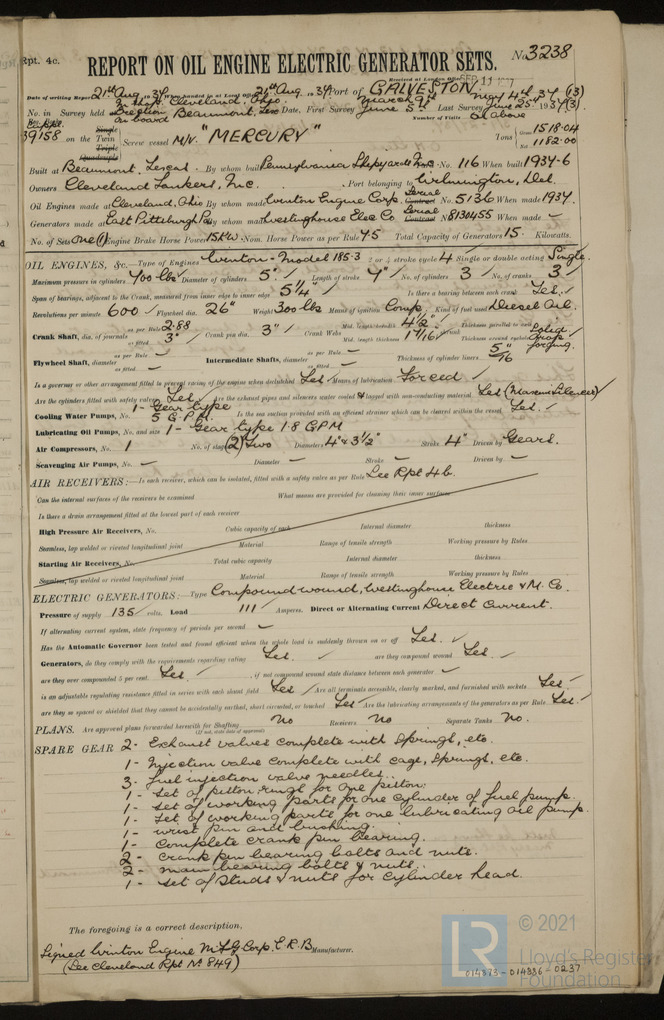 Rpt. 4c.
REPORT ON OIL ENGINE ELECTRIC GENERATOR SETS. No. 3238
Received at London Office SEP 11
Date of writing Report 21st Aug. 1934 When handed in at Local Office 21st Aug. 1934 Port of GALVESTON
No. in Survey held at Cleveland, Ohio. Date, First Survey March 9th Last Survey May 4th 1934 (13)
Reg. Book. on board Beaumont, Tex June 5th June 25th 1934 (3)
Number of Visits as above
39158 on the Single Twin Triple Quadruple Screw vessel M/V "MERCURY" Tons Gross 1518.04 Net 1182.00
Built at Beaumont, Texas. By whom built Pennsylvania Shipyards Inc. Yard No. 116 When built 1934-6
Owners Cleveland Tankers, Inc. Port belonging to Wilmington, Del.
Oil Engines made at Cleveland, Ohio By whom made Winton Engine Corp. Serial Contract No. 5136 When made 1934.
Generators made at East Pittsburgh Pa By whom made Westinghouse Elec Co Serial Contract No. 8130455 When made —
No. of Sets One (1) Engine Brake Horse Power 15KW. Nom. Horse Power as per Rule 7.5 Total Capacity of Generators 15 Kilowatts.
OIL ENGINES, &c.—Type of Engines Winton - Model 185-3 2 or 4 stroke cycle 4 Single or double acting Single.
Maximum pressure in cylinders 700 lbs Diameter of cylinders 5" Length of stroke 7" No. of cylinders 3 No. of cranks 3
Span of bearings, adjacent to the Crank, measured from inner edge to inner edge 5 1/4" Is there a bearing between each crank Yes.
Revolutions per minute 600 Flywheel dia. 26" Weight 300 lbs Means of ignition Comp. Kind of fuel used Diesel Oil.
Crank Shaft, dia. of journals as per Rule 2.88 as fitted 3" Crank pin dia. 3" Crank Webs Mid. length breadth 4 1/2" Mid. length thickness 1 7/16" Thickness parallel to axis Solid Thickness around eyehole drop forging.
Flywheel Shaft, diameter as per Rule — as fitted — Intermediate Shafts, diameter as per Rule — as fitted — Thickness of cylinder liners 5/16"
Is a governor or other arrangement fitted to prevent racing of the engine when declutched Yes Means of lubrication Forced
Are the cylinders fitted with safety valves Yes Are the exhaust pipes and silencers water cooled or lagged with non-conducting material Yes (Maxim Silencer)
Cooling Water Pumps, No. 1 - Gear type 5 G.P.M. Is the sea suction provided with an efficient strainer which can be cleared within the vessel Yes.
Lubricating Oil Pumps, No. and size 1 - Gear type 1.8 GPM
Air Compressors, No. 1 No. of stages (2) Two Diameters 4" & 3 1/2" Stroke 4" Driven by Gears.
Scavenging Air Pumps, No. — Diameter — Stroke — Driven by —
AIR RECEIVERS:—Is each receiver, which can be isolated, fitted with a safety valve as per Rule See Rpt 4b.
Can the internal surfaces of the receivers be examined What means are provided for cleaning their inner surfaces
Is there a drain arrangement fitted at the lowest part of each receiver
High Pressure Air Receivers, No. Cubic capacity of each Internal diameter thickness
Seamless, lap welded or riveted longitudinal joint Material Range of tensile strength Working pressure by Rules
Starting Air Receivers, No. Total cubic capacity Internal diameter thickness
Seamless, lap welded or riveted longitudinal joint Material Range of tensile strength Working pressure by Rules
ELECTRIC GENERATORS:—Type Compound wound, Westinghouse Electric & M. Co.
Pressure of supply 135 volts. Load 111 Amperes. Direct or Alternating Current Direct Current.
If alternating current system, state frequency of periods per second —
Has the Automatic Governor been tested and found efficient when the whole load is suddenly thrown on or off Yes.
Generators, do they comply with the requirements regarding rating Yes. are they compound wound Yes
are they over compounded 5 per cent. Yes. , if not compound wound state distance between each generator —
is an adjustable regulating resistance fitted in series with each shunt field Yes Are all terminals accessible, clearly marked, and furnished with sockets Yes.
are they so spaced or shielded that they cannot be accidentally earthed, short circuited, or touched Yes Are the lubricating arrangements of the generators as per Rule Yes.
PLANS. Are approved plans forwarded herewith for Shafting No Receivers No Separate Tanks No.
(If not, state date of approval)
SPARE GEAR 2 - Exhaust valves complete with Springs, etc.
1 - Injection valve complete with cage, Springs, etc.
3 - Fuel injection valve needles.
1 - Set of piston rings for one piston.
1 - Set of working parts for one cylinder of fuel pump.
1 - Set of working parts for one lubricating oil pump.
1 - wrist pin and bushing.
1 - Complete crank pin bearing.
2 - crank pin bearing bolts and nuts.
2 - main bearing bolts & nuts.
1 - Set of Studs & nuts for cylinder head.
The foregoing is a correct description,
Signed Winton Engine MFG Corp. E.R.B Manufacturer.
(See Cleveland Rpt No. 849)
© 2021
LR
Lloyd's Register
Foundation
014873-014886-0237